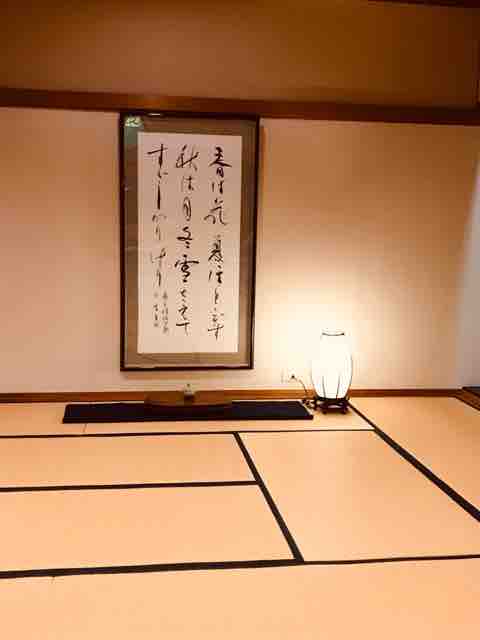 春は花 夏ほとゝぎす
秋は月冬雪さえて
すゞしかりけり